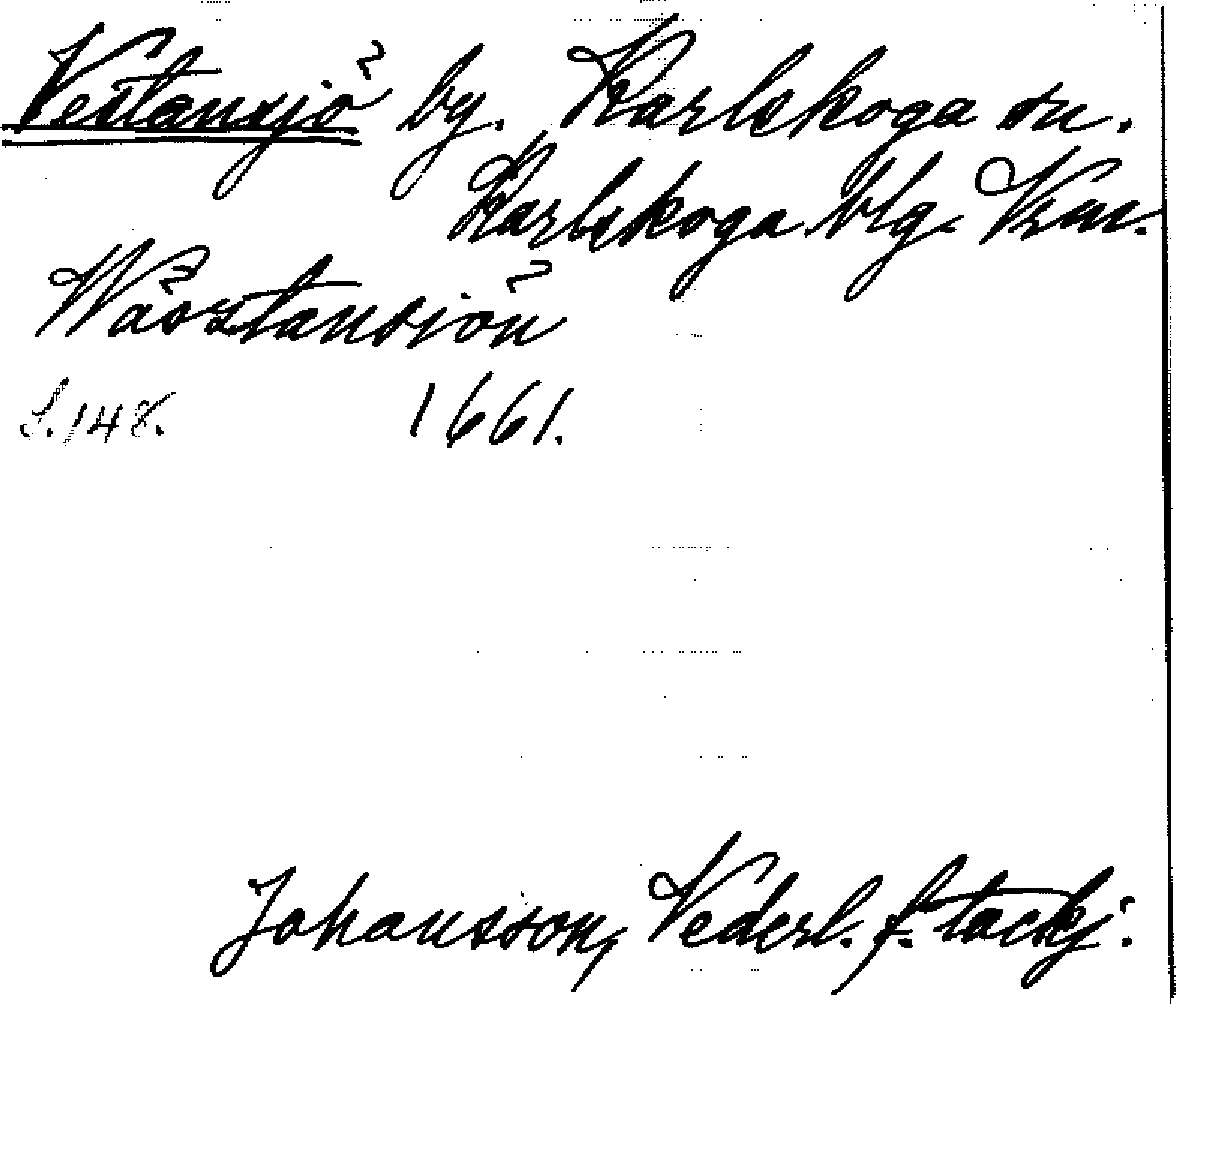 Vestansjö by. Karlskoga sn.
Karlskoga blg. Vrm.
Wässtansiön
S. 148. 1661.
Johansson, Vederl. f. tackj: